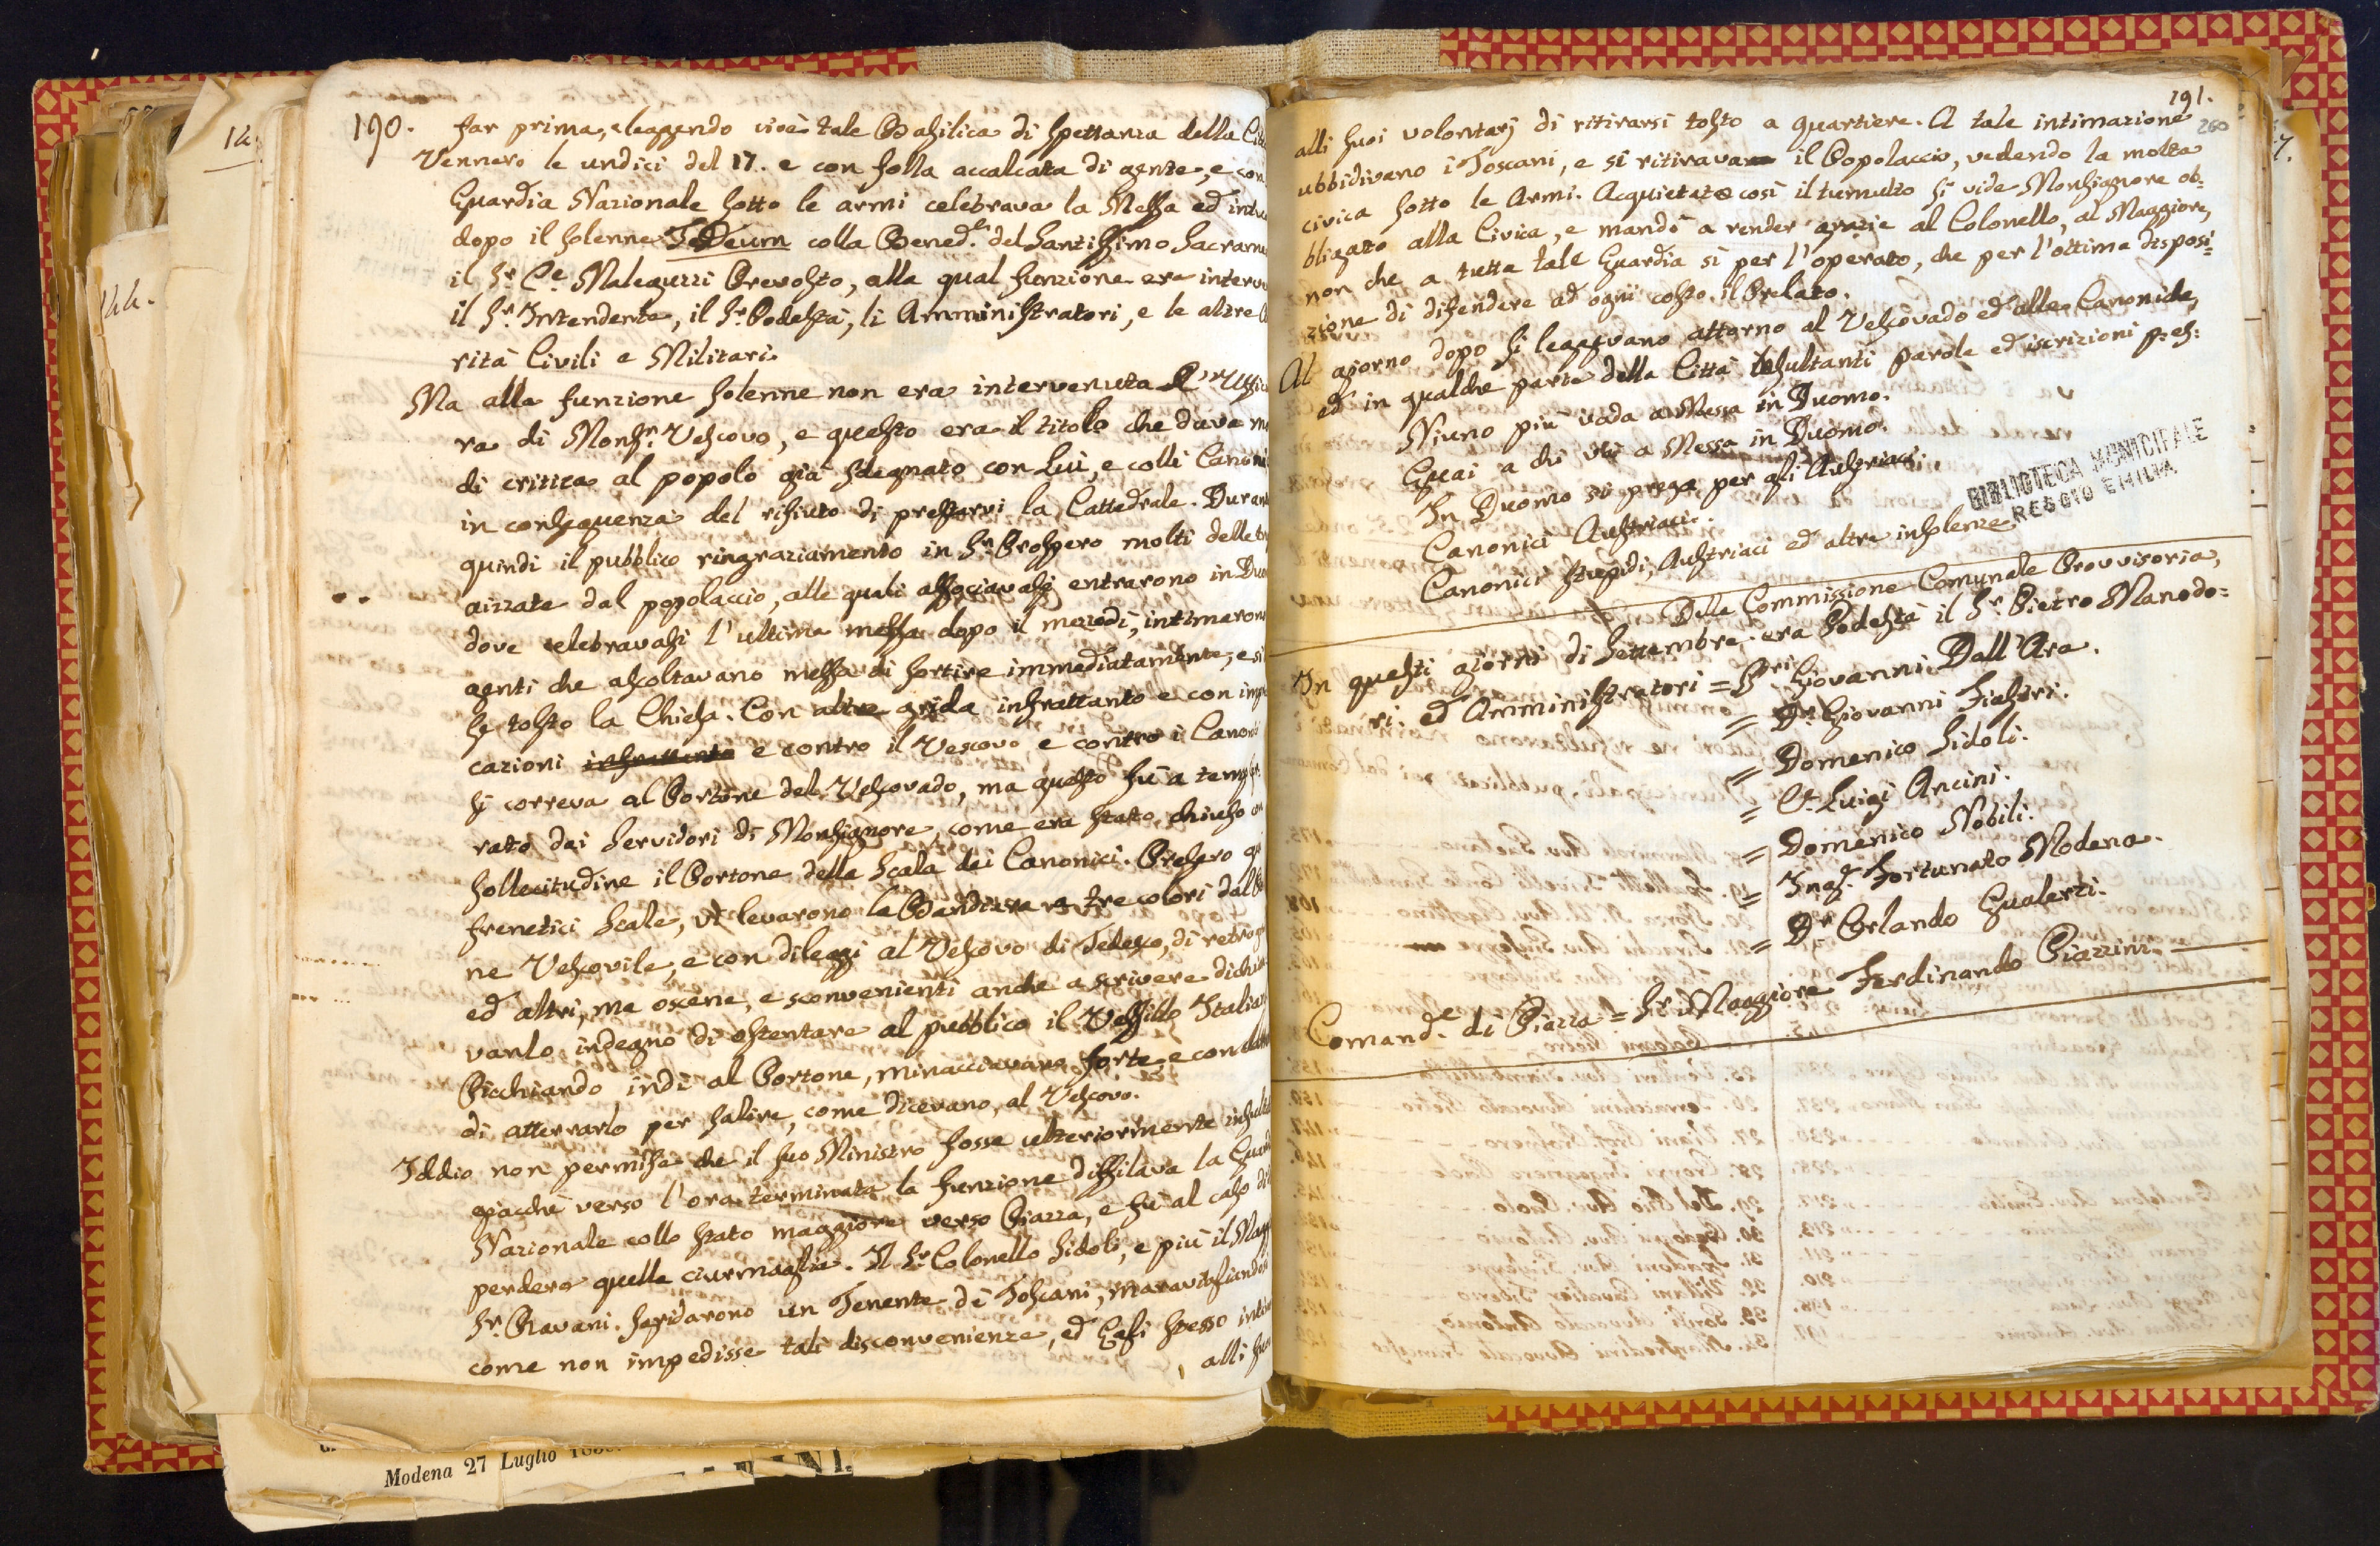 190.
far prima, eleggendo cioè tale Basilica di spettanza della
Vennero le undici del 17. e con folla accalcata di gente, e con
Guardia Nazionale sotto le armi celebrava la Messa ed
dopo il solenne TeDeum colla Bened.e del Santissimo
il Sr. Ce. Maleguzzi Prevosto, alla qual funzione era
il Sr. Intendente, il Sr. Podestà, li Amministratori, e le altre
rità Civili e Militari.
Ma alla funzione solenne non era intervenuta
ra di Monsr. Vescovo, e questo era il titolo che dava
di critica al popolo già sdegnato con Lui, e colli
in conseguenza del rifiuto di prestarvi la Cattedrale.
quindi il pubblico ringraziamento in Sn. Prospero molti delle
aizzate dal popolaccio, alle quali associavasi entrarono in
dove celebravasi l'ultima messa dopo il mezzodì,
genti che ascoltavano messa di sortire immediatamente, e si
se tosto la Chiesa. Con altre grida infrattanto e con
cazioni infrattanto e contro il Vescovo e contro i
si correva al Portone del Vescovado, ma questo fù a
rato dai Servidori di Monsignore, come era stato chiuso
sollecitudine il Portone della Scala dei Canonici. Presero
frenetici Scale, levarono la Bandiera a tre colori
ne Vescovile, e con dileggi al Vescovo di Tedesco, di
ed altri, ma oscene, e sconvenienti anche a scrivere
vanlo indegno di ostentare al pubblico il Vessillo
Picchiando indi al Portone, minacciavano forte, e con
di atterrarlo per salire, come dicevano, al Vescovo.
Iddio non permise che il suo Ministro fosse ulteriormente
giacchè verso l'ora terminata la funzione diffilava la
Nazionale collo stato maggiore verso Piazza, e fù al caso
perdere quella ciurmaglia. Il Sr. Colonello Sidoli, e più il
Sr. Ravani. sgridarono un Tenente de' Toscani,
come non impedisse tali disconvenienze, ed Egli stesso
alli
191.
260
alli suoi volontarj di ritirarsi tosto a quartiere. A tale intimazione
ubbidivano i Toscani, e si ritirava il Popolaccio, vedendo la molta
civica sotto le Armi. Acquietato così il tumulto si vide Monsignore ob=
bligato alla Civica, e mandò a render grazie al Colonello, al Maggiore,
non che a tutta tale Guardia si per l'operato, che per l'ottima disposi=
zione di difendere ad ogni costo il Prelato.
Al giorno dopo si leggevano attorno al Vescovado ed alle Canoniche,
ed in qualche parte della Città insultanti parole ed iscrizioni p. es:
Niuno più vada a Messa in Duomo.
Guai a chi và a Messa in Duomo.
In Duomo si prega per gli Austriaci.
Canonici Austriaci.
Canonici stupidi, Austriaci ed altre insolenze.
BIBLIOTECA MUNICIPALE
REGGIO EMILIA
Della Commissione Comunale Provvisoria,
In questi giorni di Settembre era Podestà il Sr. Pietro Manodo=
ri. ed Amministratori = Sri Giovanni Dall'Ara.
= Dr. Giovanni Fiastri.
= Domenico Sidoli.
= Ce. Luigi Ancini.
= Domenico Nobili.
= Ingr. Fortunato Modena.
= Dr Orlando Gualerzi.
Comande. di Piazza = Sr. Maggiore Ferdinando Piazzini.
14
144.
7.
Modena 27 Luglio